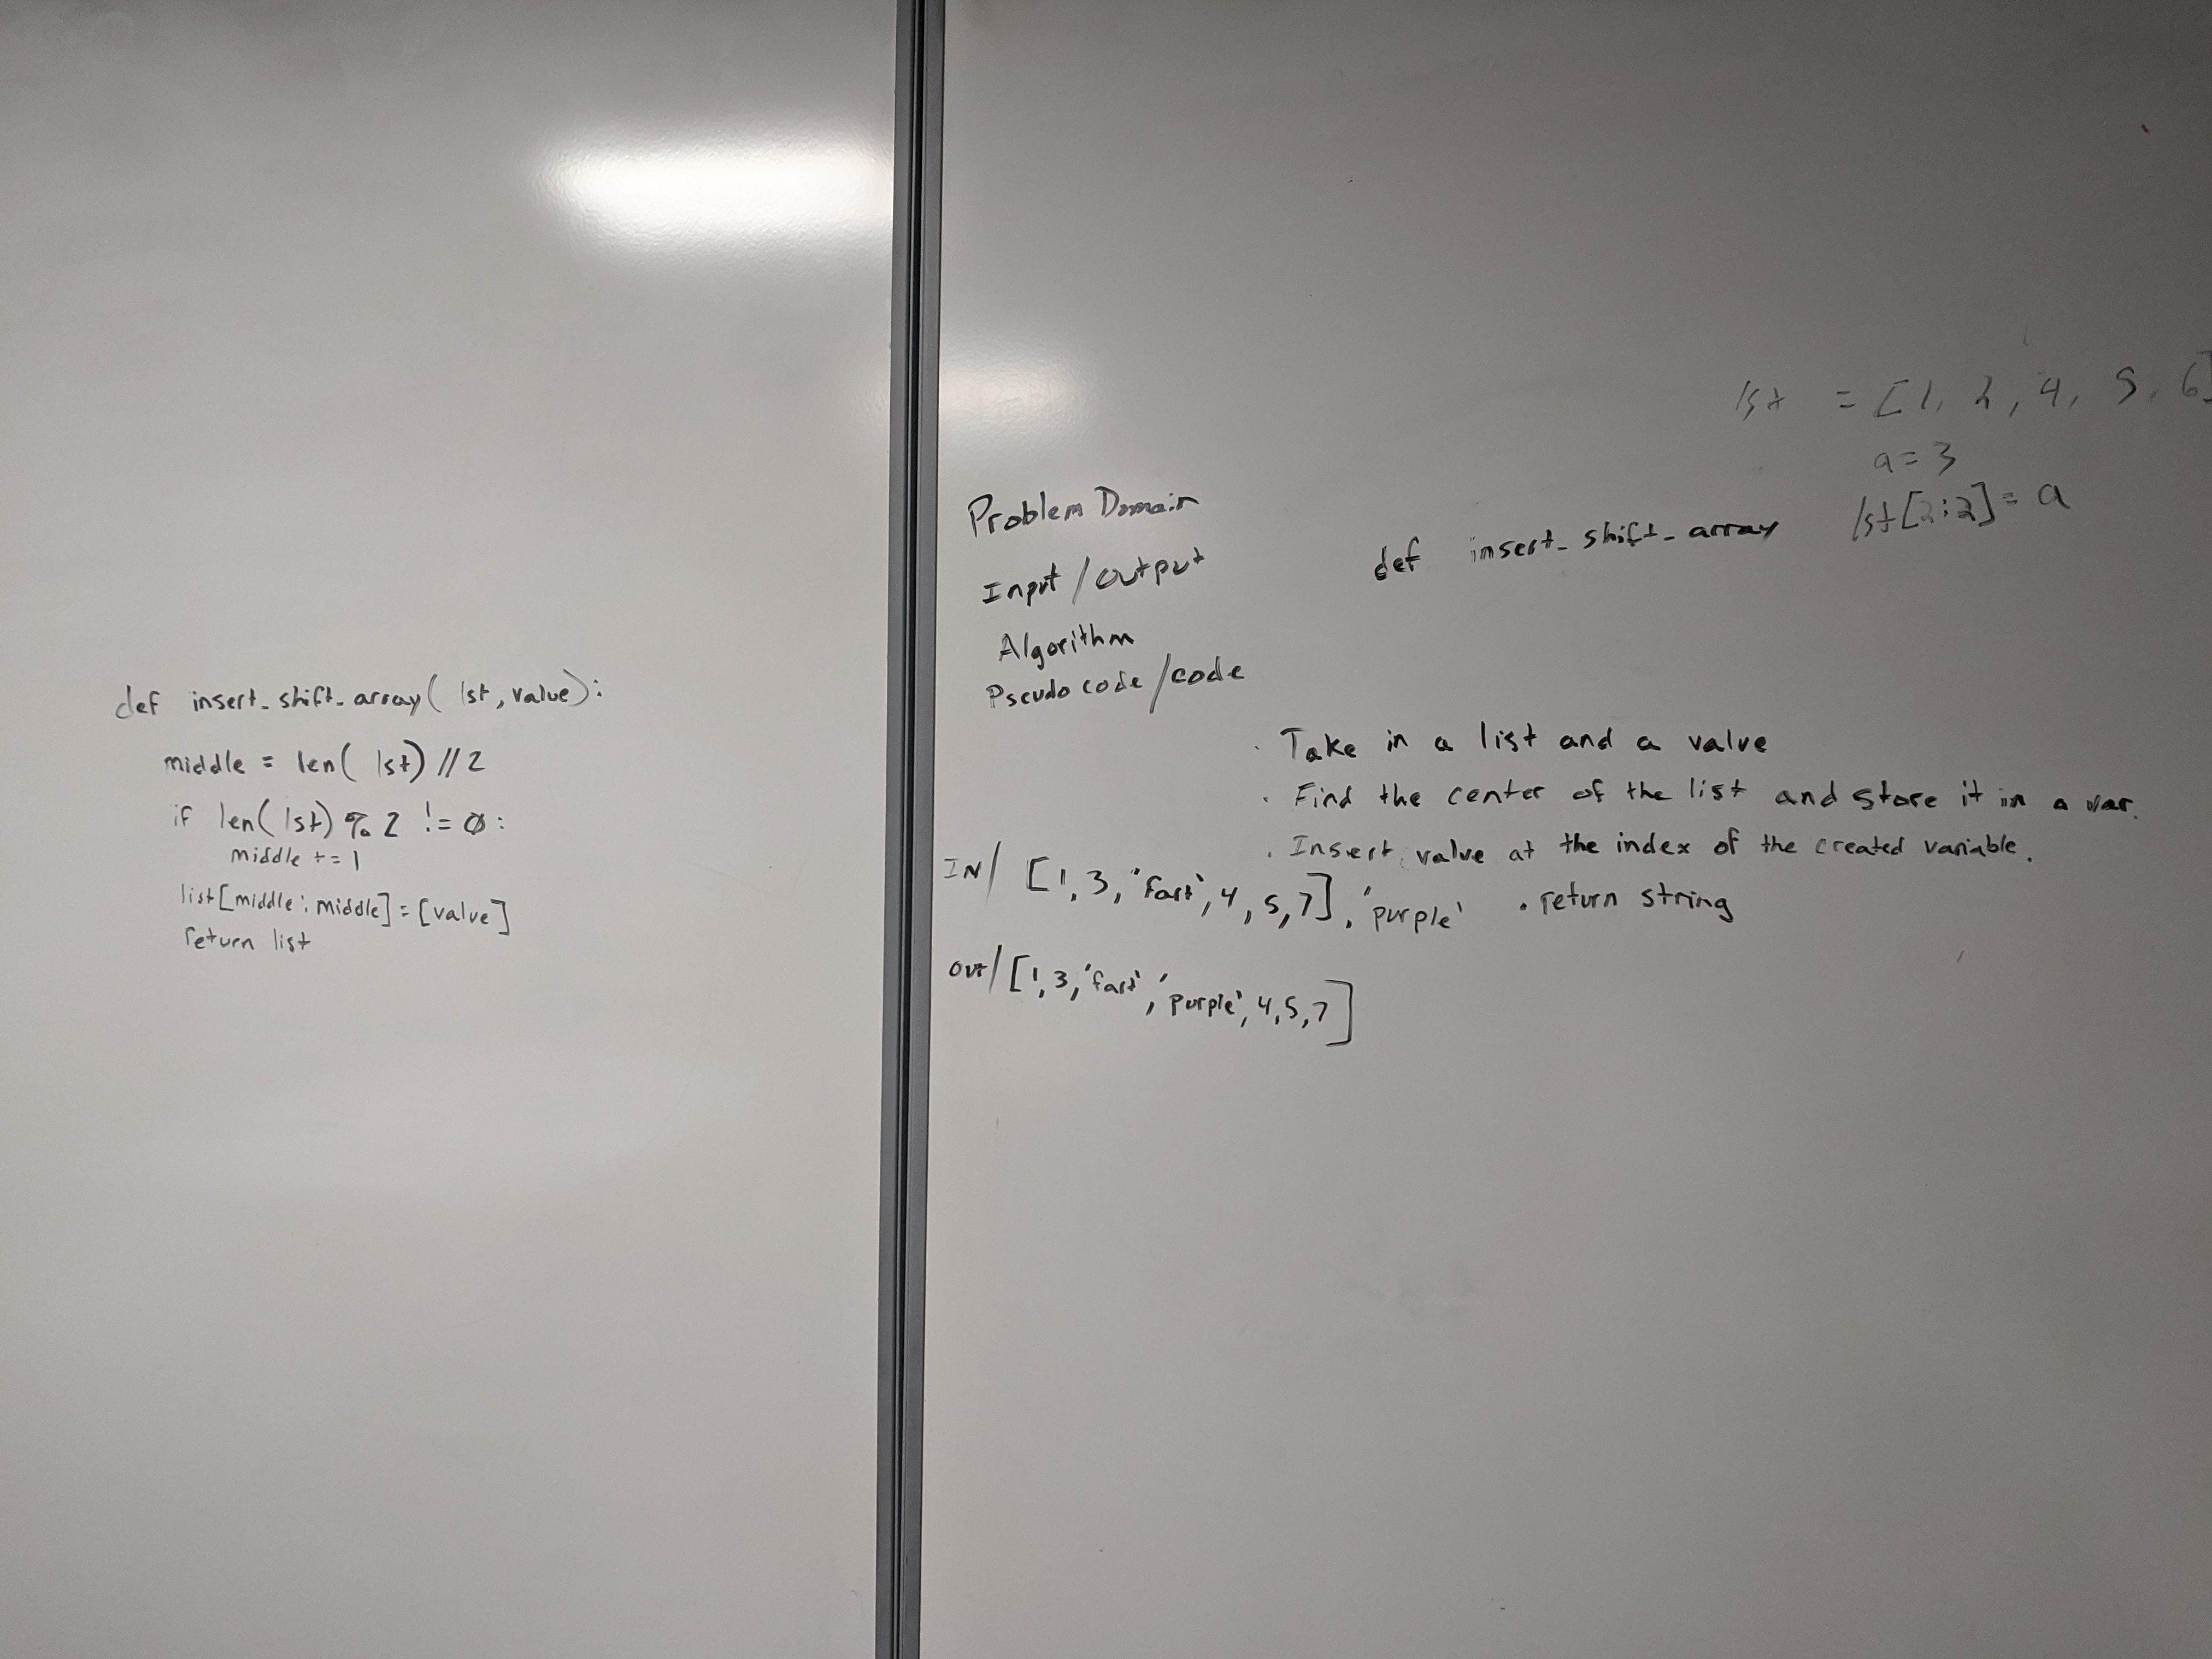 def insert_shift_array( lst, value):
middle = len( lst) // 2
if len( lst) % 2 != 0:
middle += 1
list[middle:middle] = [value]
return list
lst = [1, 2, 4, 5, 6]
a = 3
lst[2:2] = a
Problem Domain
def insert_shift_array
Input / output
Algorithm
Pseudo code / code
· Take in a list and a value
· Find the center of the list and store it in a var.
· Insert value at the index of the created variable.
· return string
IN/ [1, 3, 'fast', 4, 5, 7], 'purple'
OUT/ [1, 3, 'fast', 'purple', 4, 5, 7]